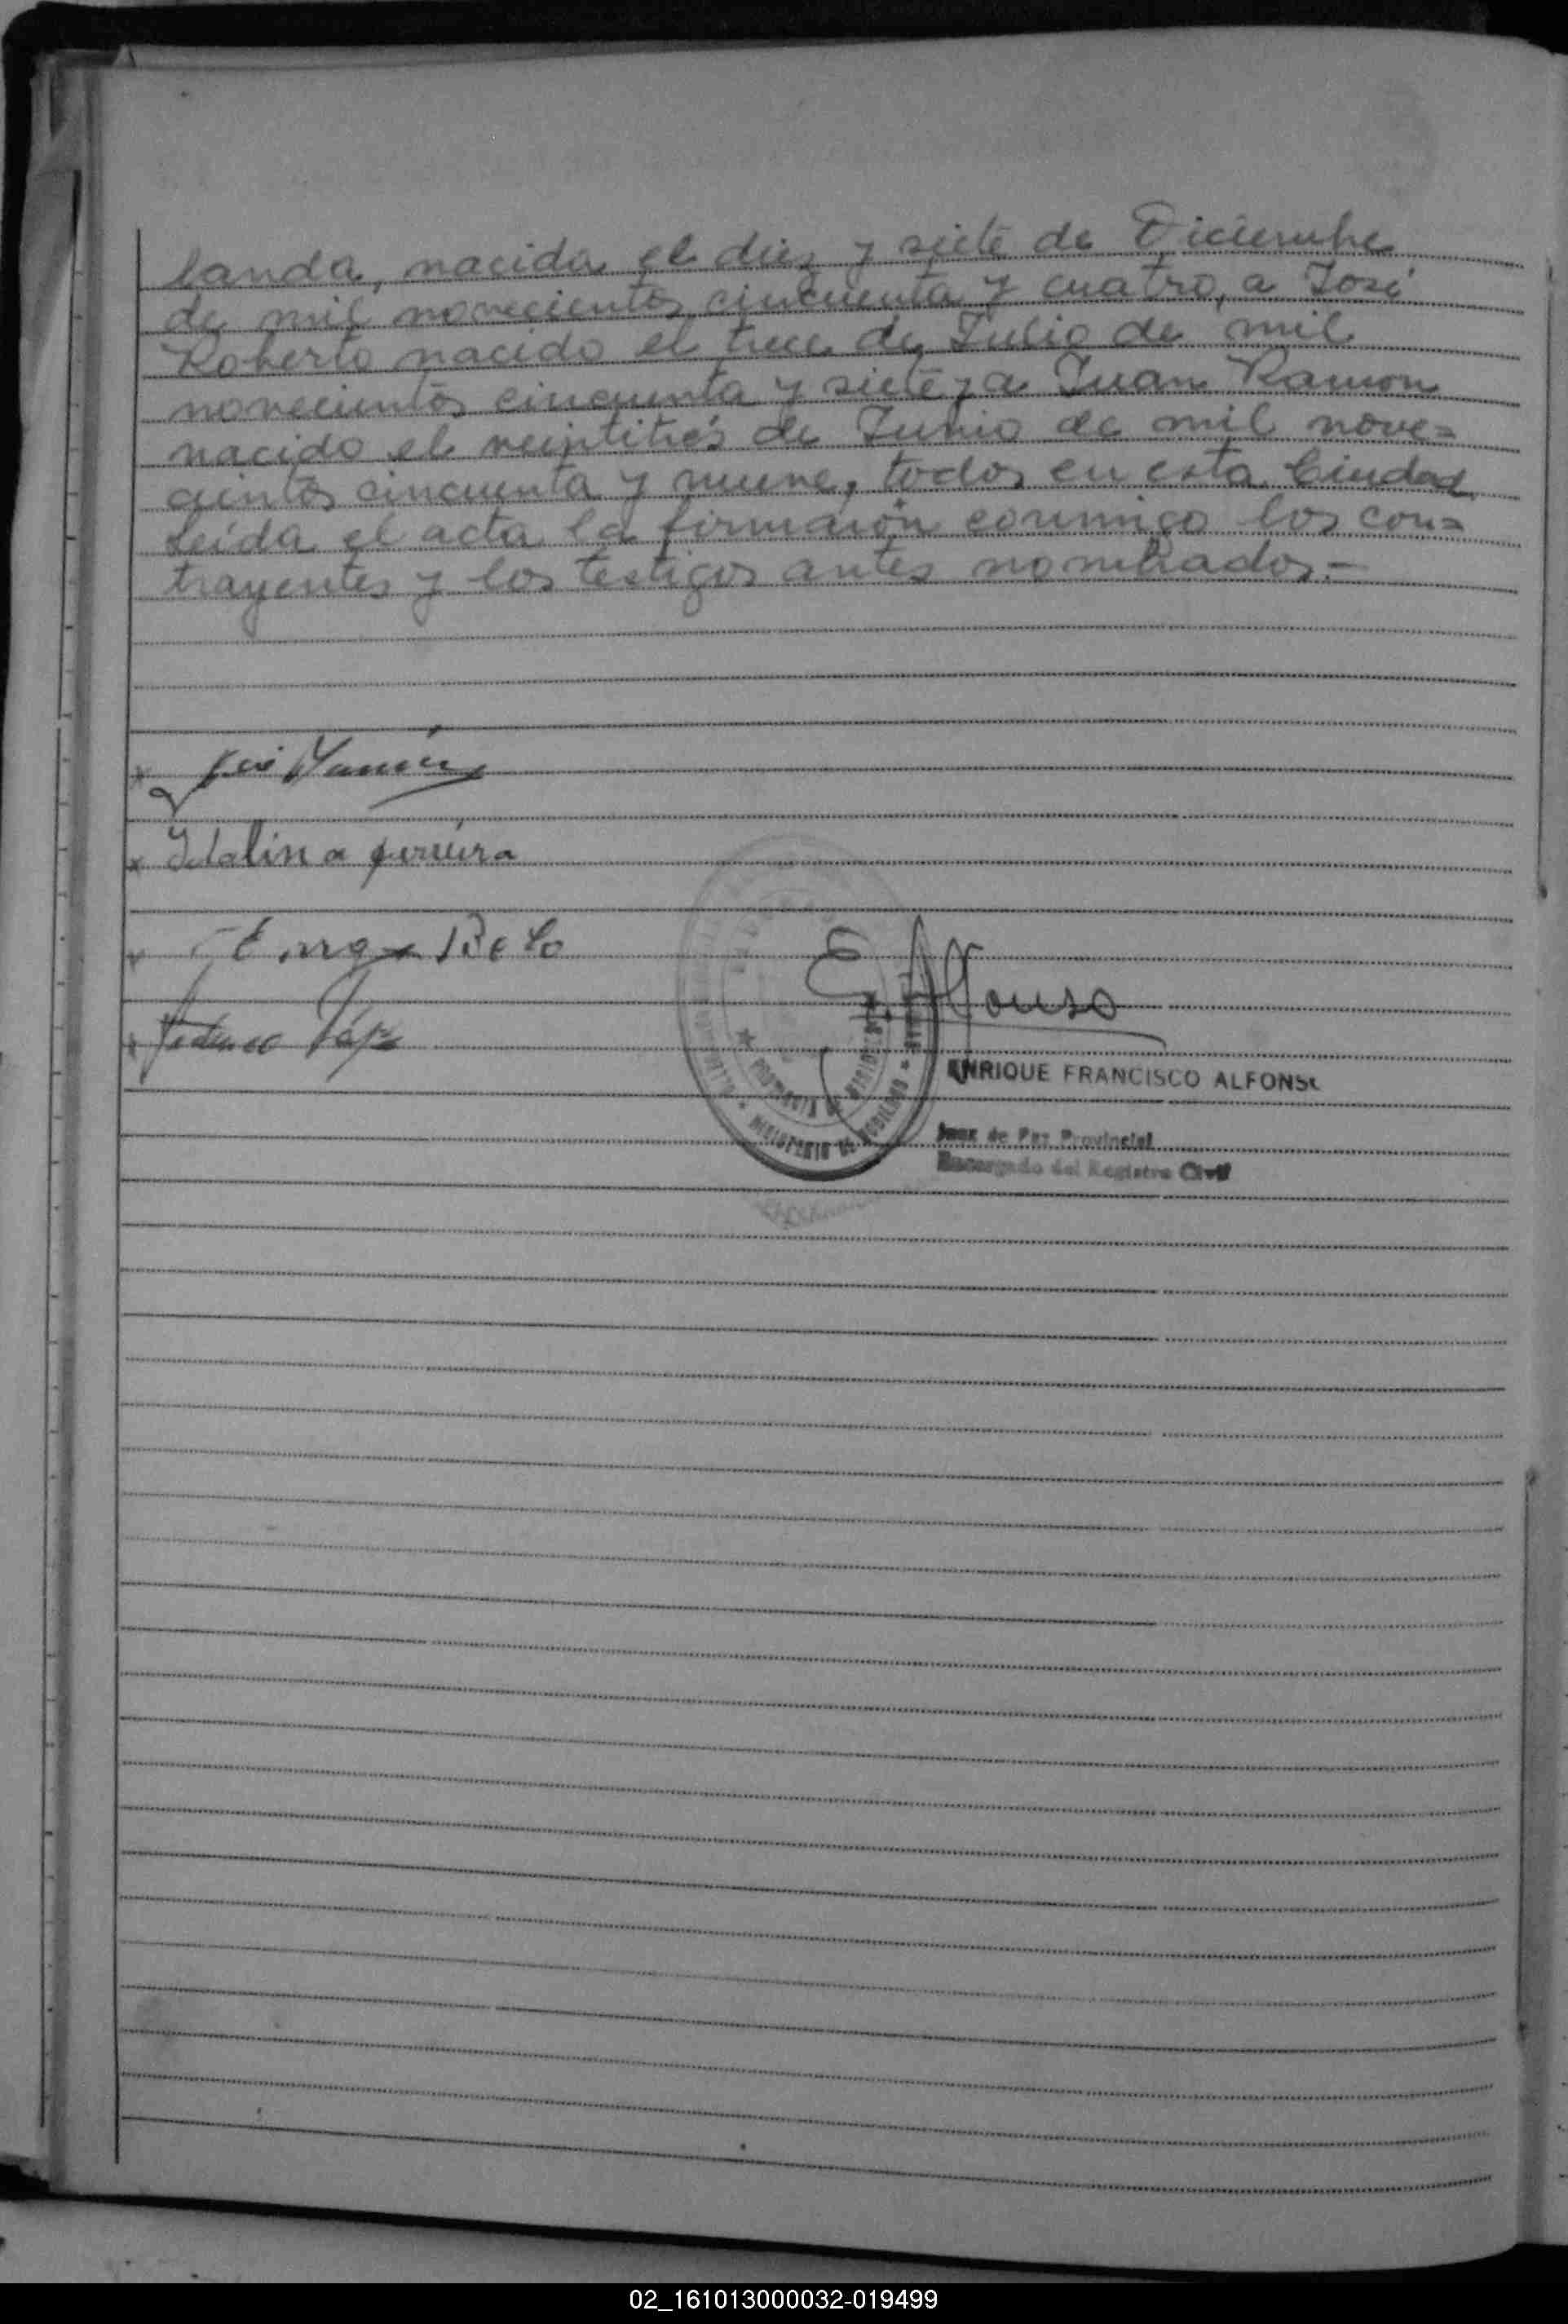 landa, nacida el diez y siete de Diciembre
de mil novecientos cincuenta y cuatro, a José
Roberto nacido el trece de Julio de mil
novecientos cincuenta y siete y a Juan Ramon
nacido el veintitrés de Junio de mil nove=
cientos cincuenta y nueve, todos en esta Ciudad
Leida el acta la firmarón conmigo los con=
trayentes y los testigos antes nombrados.-
x José
x Idalina
x
x Federico
E. Alfonso
ENRIQUE FRANCISCO ALFONSO
Juez de Paz Provincial
Encargado del Registro Civil
02_161013000032-019499